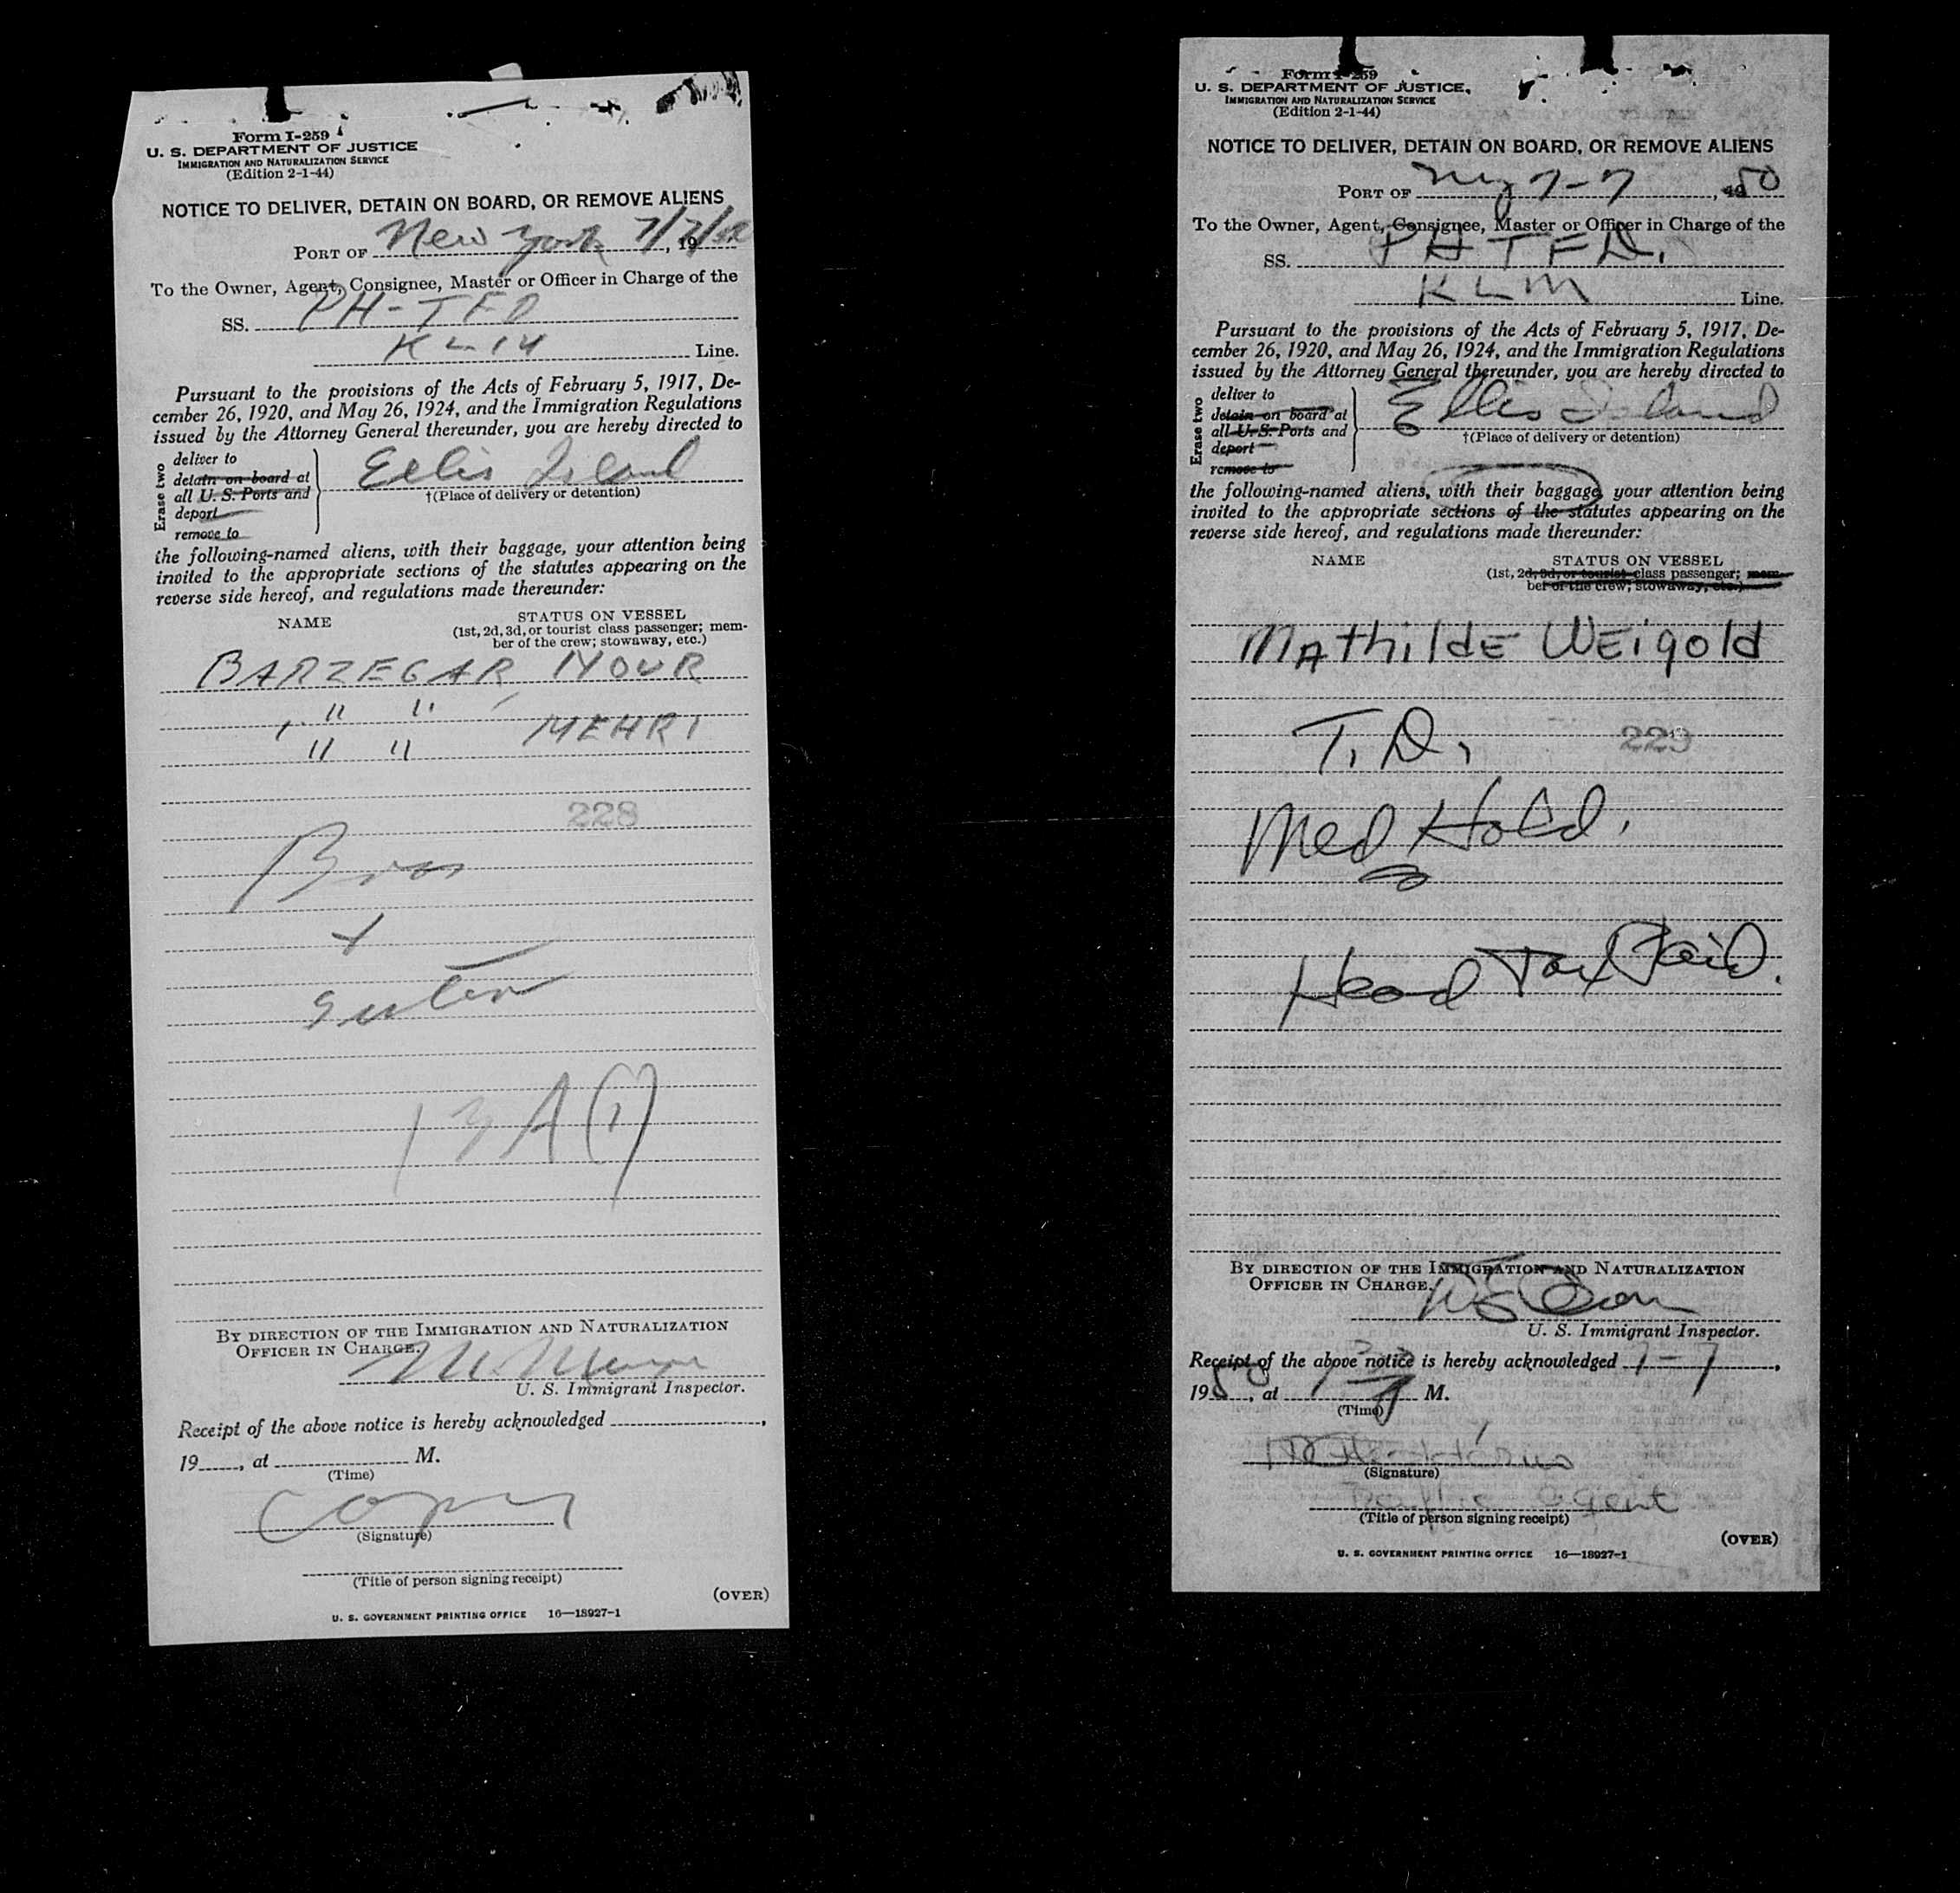 Form I-259
U. S. DEPARTMENT OF JUSTICE
IMMIGRATION AND NATURALIZATION SERVICE
(Edition 2-1-44)
NOTICE TO DELIVER, DETAIN ON BOARD, OR REMOVE ALIENS
PORT OF New York 7/7/50, 19
To the Owner, Agent, Consignee, Master or Officer in Charge of the
SS. PH-TFD
KLM Line.
Pursuant to the provisions of the Acts of February 5, 1917, De-
cember 26, 1920, and May 26, 1924, and the Immigration Regulations
issued by the Attorney General thereunder, you are hereby directed to
Erase two
deliver to
detain on board at
all U. S. Ports and
deport
remove to
Ellis Island
†(Place of delivery or detention)
the following-named aliens, with their baggage, your attention being
invited to the appropriate sections of the statutes appearing on the
reverse side hereof, and regulations made thereunder:
NAME STATUS ON VESSEL
(1st, 2d, 3d, or tourist class passenger; mem-
ber of the crew; stowaway, etc.)
BARZEGAR, NOUR
" "
" " MEHRI
228
Bros
+
Sister
13A(1)
BY DIRECTION OF THE IMMIGRATION AND NATURALIZATION
OFFICER IN CHARGE.
U. S. Immigrant Inspector.
Receipt of the above notice is hereby acknowledged ,
19 , at M.
(Time)
Copy
(Signature)
(Title of person signing receipt)
(OVER)
U. S. GOVERNMENT PRINTING OFFICE 16—18927-1
Form I-259
U. S. DEPARTMENT OF JUSTICE,
IMMIGRATION AND NATURALIZATION SERVICE
(Edition 2-1-44)
NOTICE TO DELIVER, DETAIN ON BOARD, OR REMOVE ALIENS
PORT OF NY 7-7, 1950
To the Owner, Agent, Consignee, Master or Officer in Charge of the
SS. PH TFD.
KLM Line.
Pursuant to the provisions of the Acts of February 5, 1917, De-
cember 26, 1920, and May 26, 1924, and the Immigration Regulations
issued by the Attorney General thereunder, you are hereby directed to
Erase two
deliver to
detain on board at
all U. S. Ports and
deport
remove to
Ellis Island
†(Place of delivery or detention)
the following-named aliens, with their baggage, your attention being
invited to the appropriate sections of the statutes appearing on the
reverse side hereof, and regulations made thereunder:
NAME STATUS ON VESSEL
(1st, 2d, 3d, or tourist class passenger; mem-
ber of the crew; stowaway, etc.)
MAthildE WEigold
T. D.
229
Med Hold.
Head Tax Paid.
BY DIRECTION OF THE IMMIGRATION AND NATURALIZATION
OFFICER IN CHARGE.
U. S. Immigrant Inspector.
Receipt of the above notice is hereby acknowledged 7-7,
1950, at M.
(Time)
(Signature)
agent
(Title of person signing receipt)
(OVER)
U. S. GOVERNMENT PRINTING OFFICE 16—18927-1